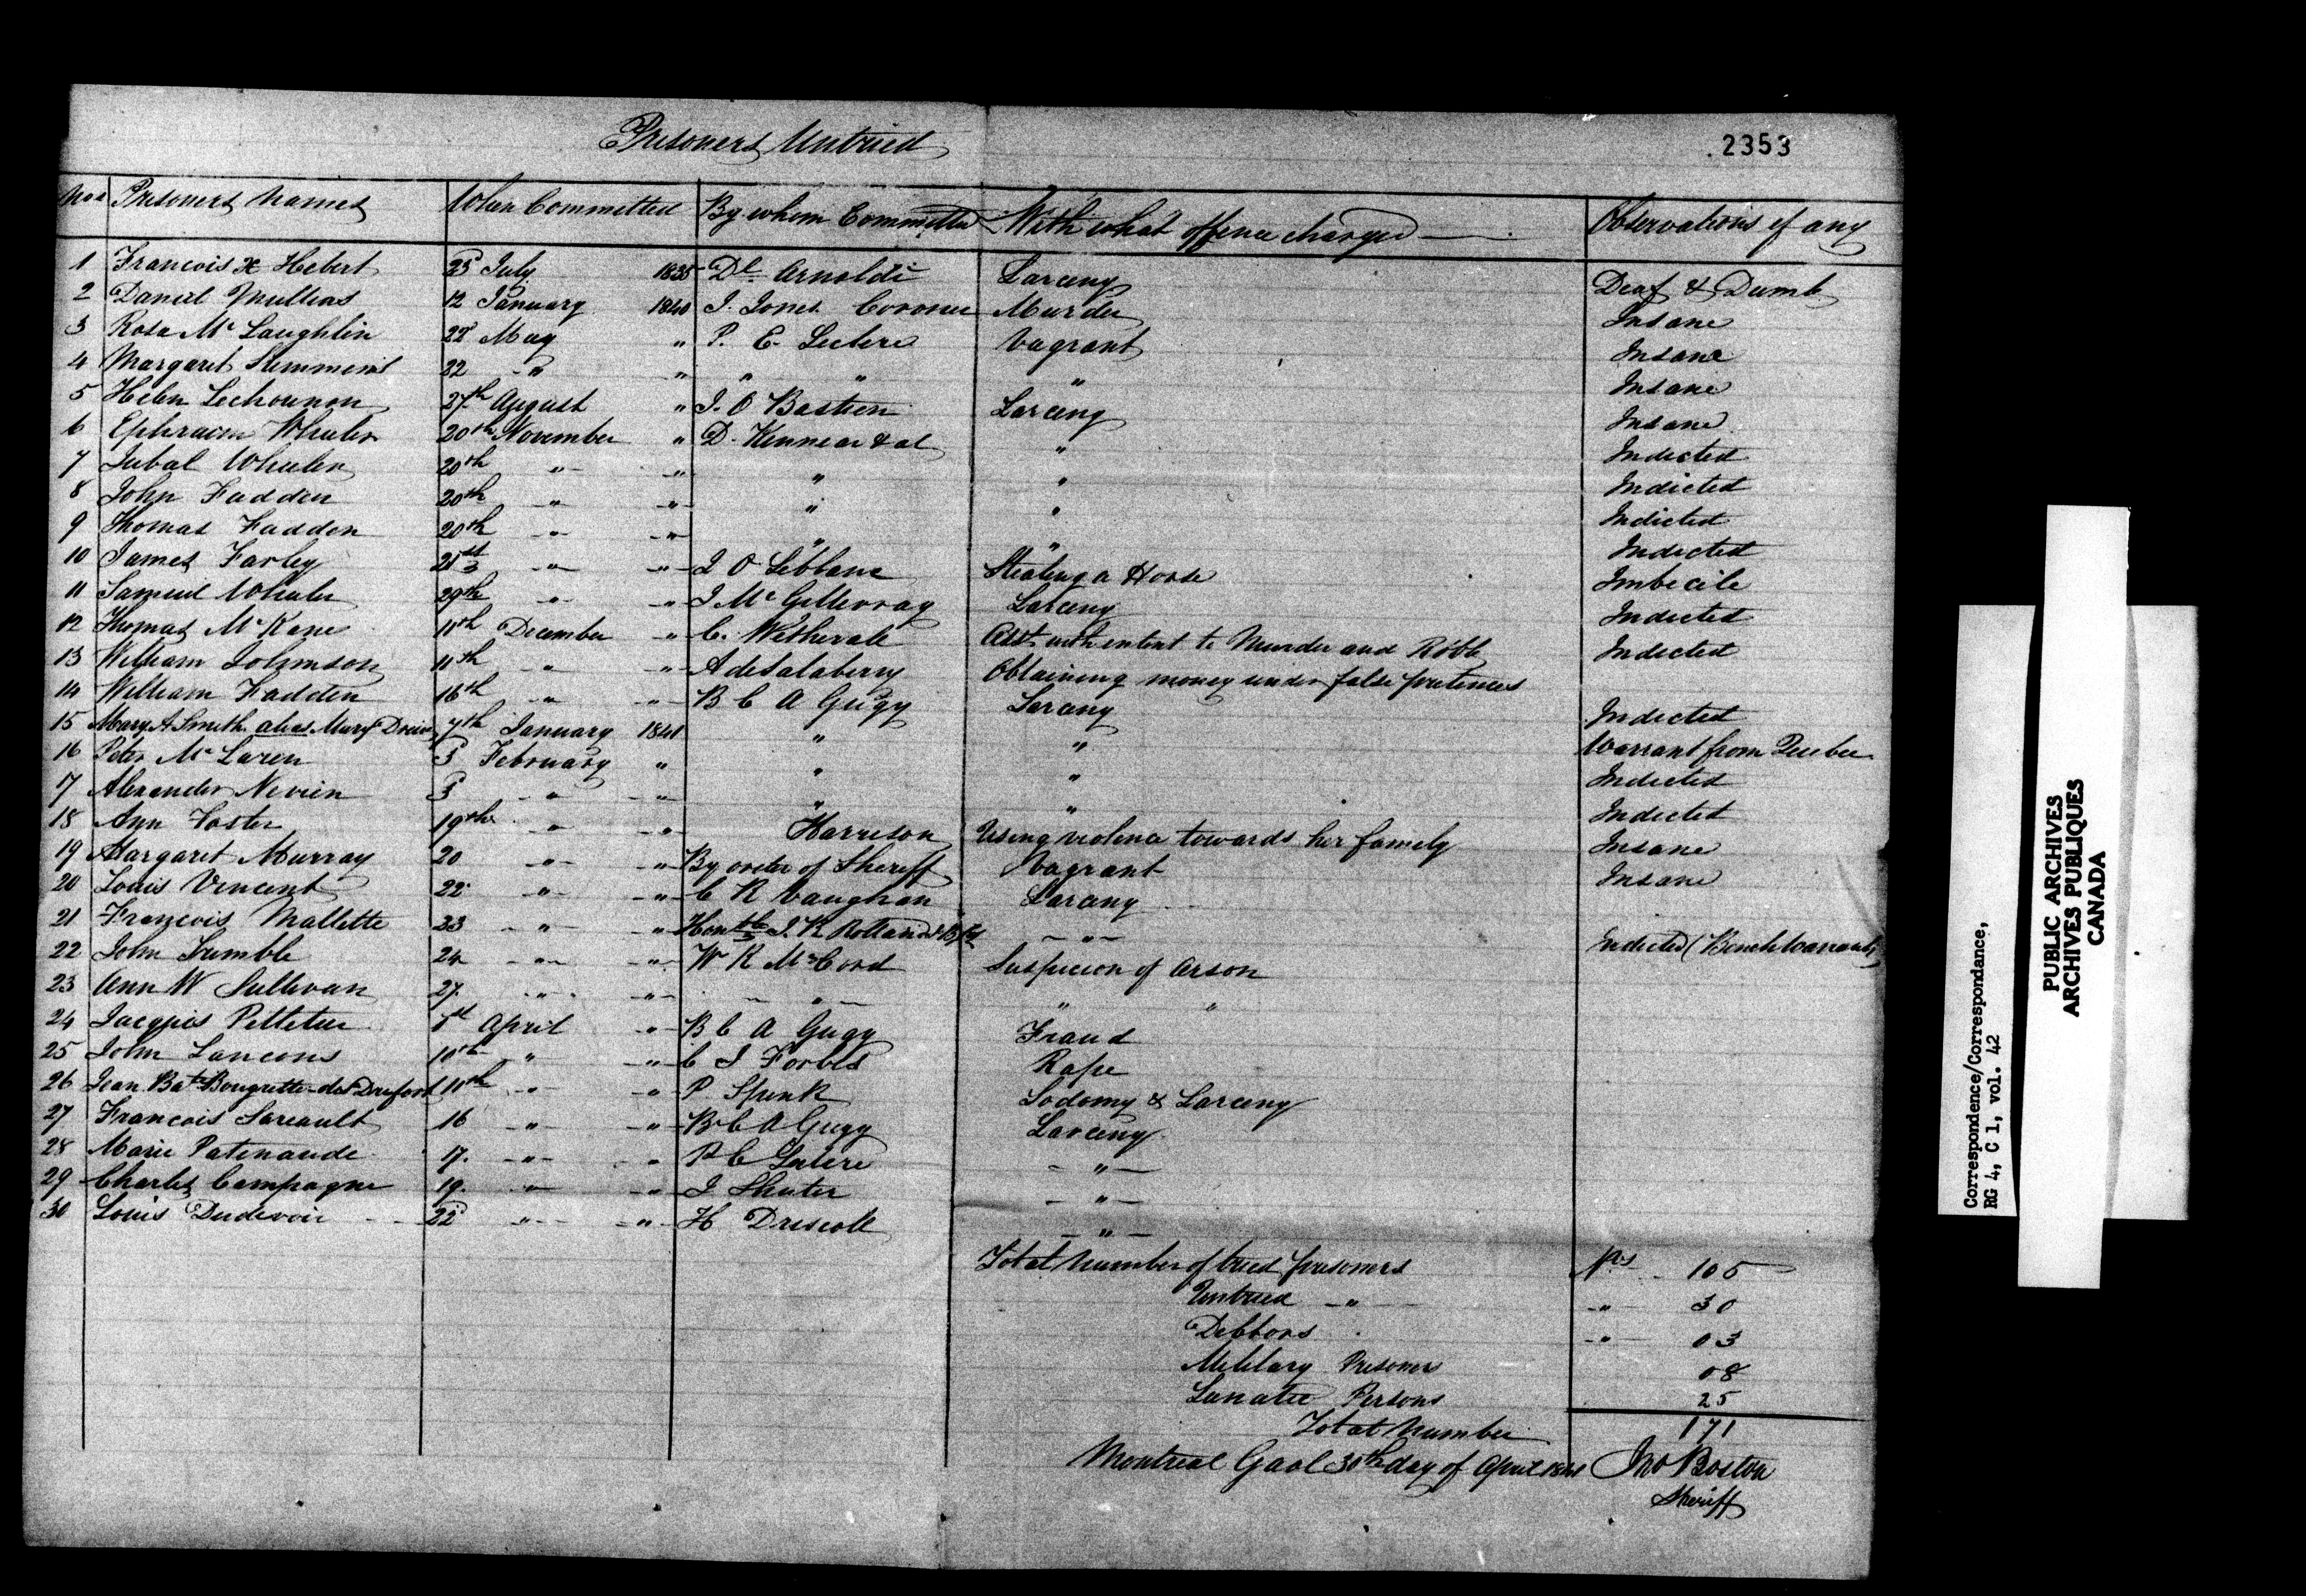 Prisoners Untried
2353
Nos Prisoners Names When Committed By whom Committed With what offence charged Observations if any
1 Francois X Hebert 25 July 1835 Dl Arnoldi Larceny Deaf & Dumb
2 Daniel Mullins 12 January 1840 J. Jones Coroner Murder Insane
3 Rosa Mc Laughlin 22d May " P. E. Leclere Vagrant Insane
4 Margaret 22 " " " " " Insane
5 Helen 27th August " J. O Bastien Larceny Insane
6 Ephraim Wheeler 20th November " D. Kinnear & al " Indicted
7 Jubal Wheeler 20th " " " " Indicted
8 John Fadden 20th " " " " Indicted
9 Thomas Fadden 20th " " " " Indicted
10 James Farley 21st " " J O Leblanc Stealing a Horse Imbecile
11 Samuel Wheeler 29th " " J Mc Gillivray Larceny Indicted
12 Thomas Mc Kane 11th December " C. Wetherall Asst with intent to Murder and Robb Indicted
13 William Johnson 11th " " A deSalaberry Obtaining money under false pretences
14 William Fadden 16th " " B C A Gugy Larceny Indicted
15 Mary A Smith alias Mary 7th January 1841 " " Warrant from Quebec
16 Peter Mc Laren 3 February " " " Indicted
17 Alexander Nevien 3 " " " " Indicted
18 Ann Foster 19th " " Harrison Using violence towards her family Insane
19 Margaret Murray 20 " " By order of Sheriff Vagrant Insane
20 Louis Vincent 22 " " C R Vaughan Larceny
21 François Mallette 23 " " Honble J. R Rolland " Indicted (Bench Warrant)
22 John Trumble 24 " " W K McCord Suspicion of Arson
23 Ann W Sullivan 27 " " " " "
24 Jacques Pelletier 1st April " B C A Gugy Fraud
25 John 10th " " C J Forbes Rape
26 Jean Bat Bougrette dit Dufort 10th " " P. Spink Sodomy & Larceny
27 Francois Sareault 16 " " B C A Gugy Larceny
28 Marie Patenaude 17. " " P E Leclere "
29 Charles Campagne 19. " " J Shuter "
30 Louis Dudevoir 22 " " H Driscoll "
Total Number of tried prisoners Nos 105
Untried " " 30
Debtors " 03
Military Prisoners 08
Lunatic Persons 25
Total Number 171
Montreal Gaol 30th day of April 1841 Jno Boston
Sheriff
Correspondence/Correspondance,
RG 4, C 1, vol. 42
PUBLIC ARCHIVES
ARCHIVES PUBLIQUES
CANADA